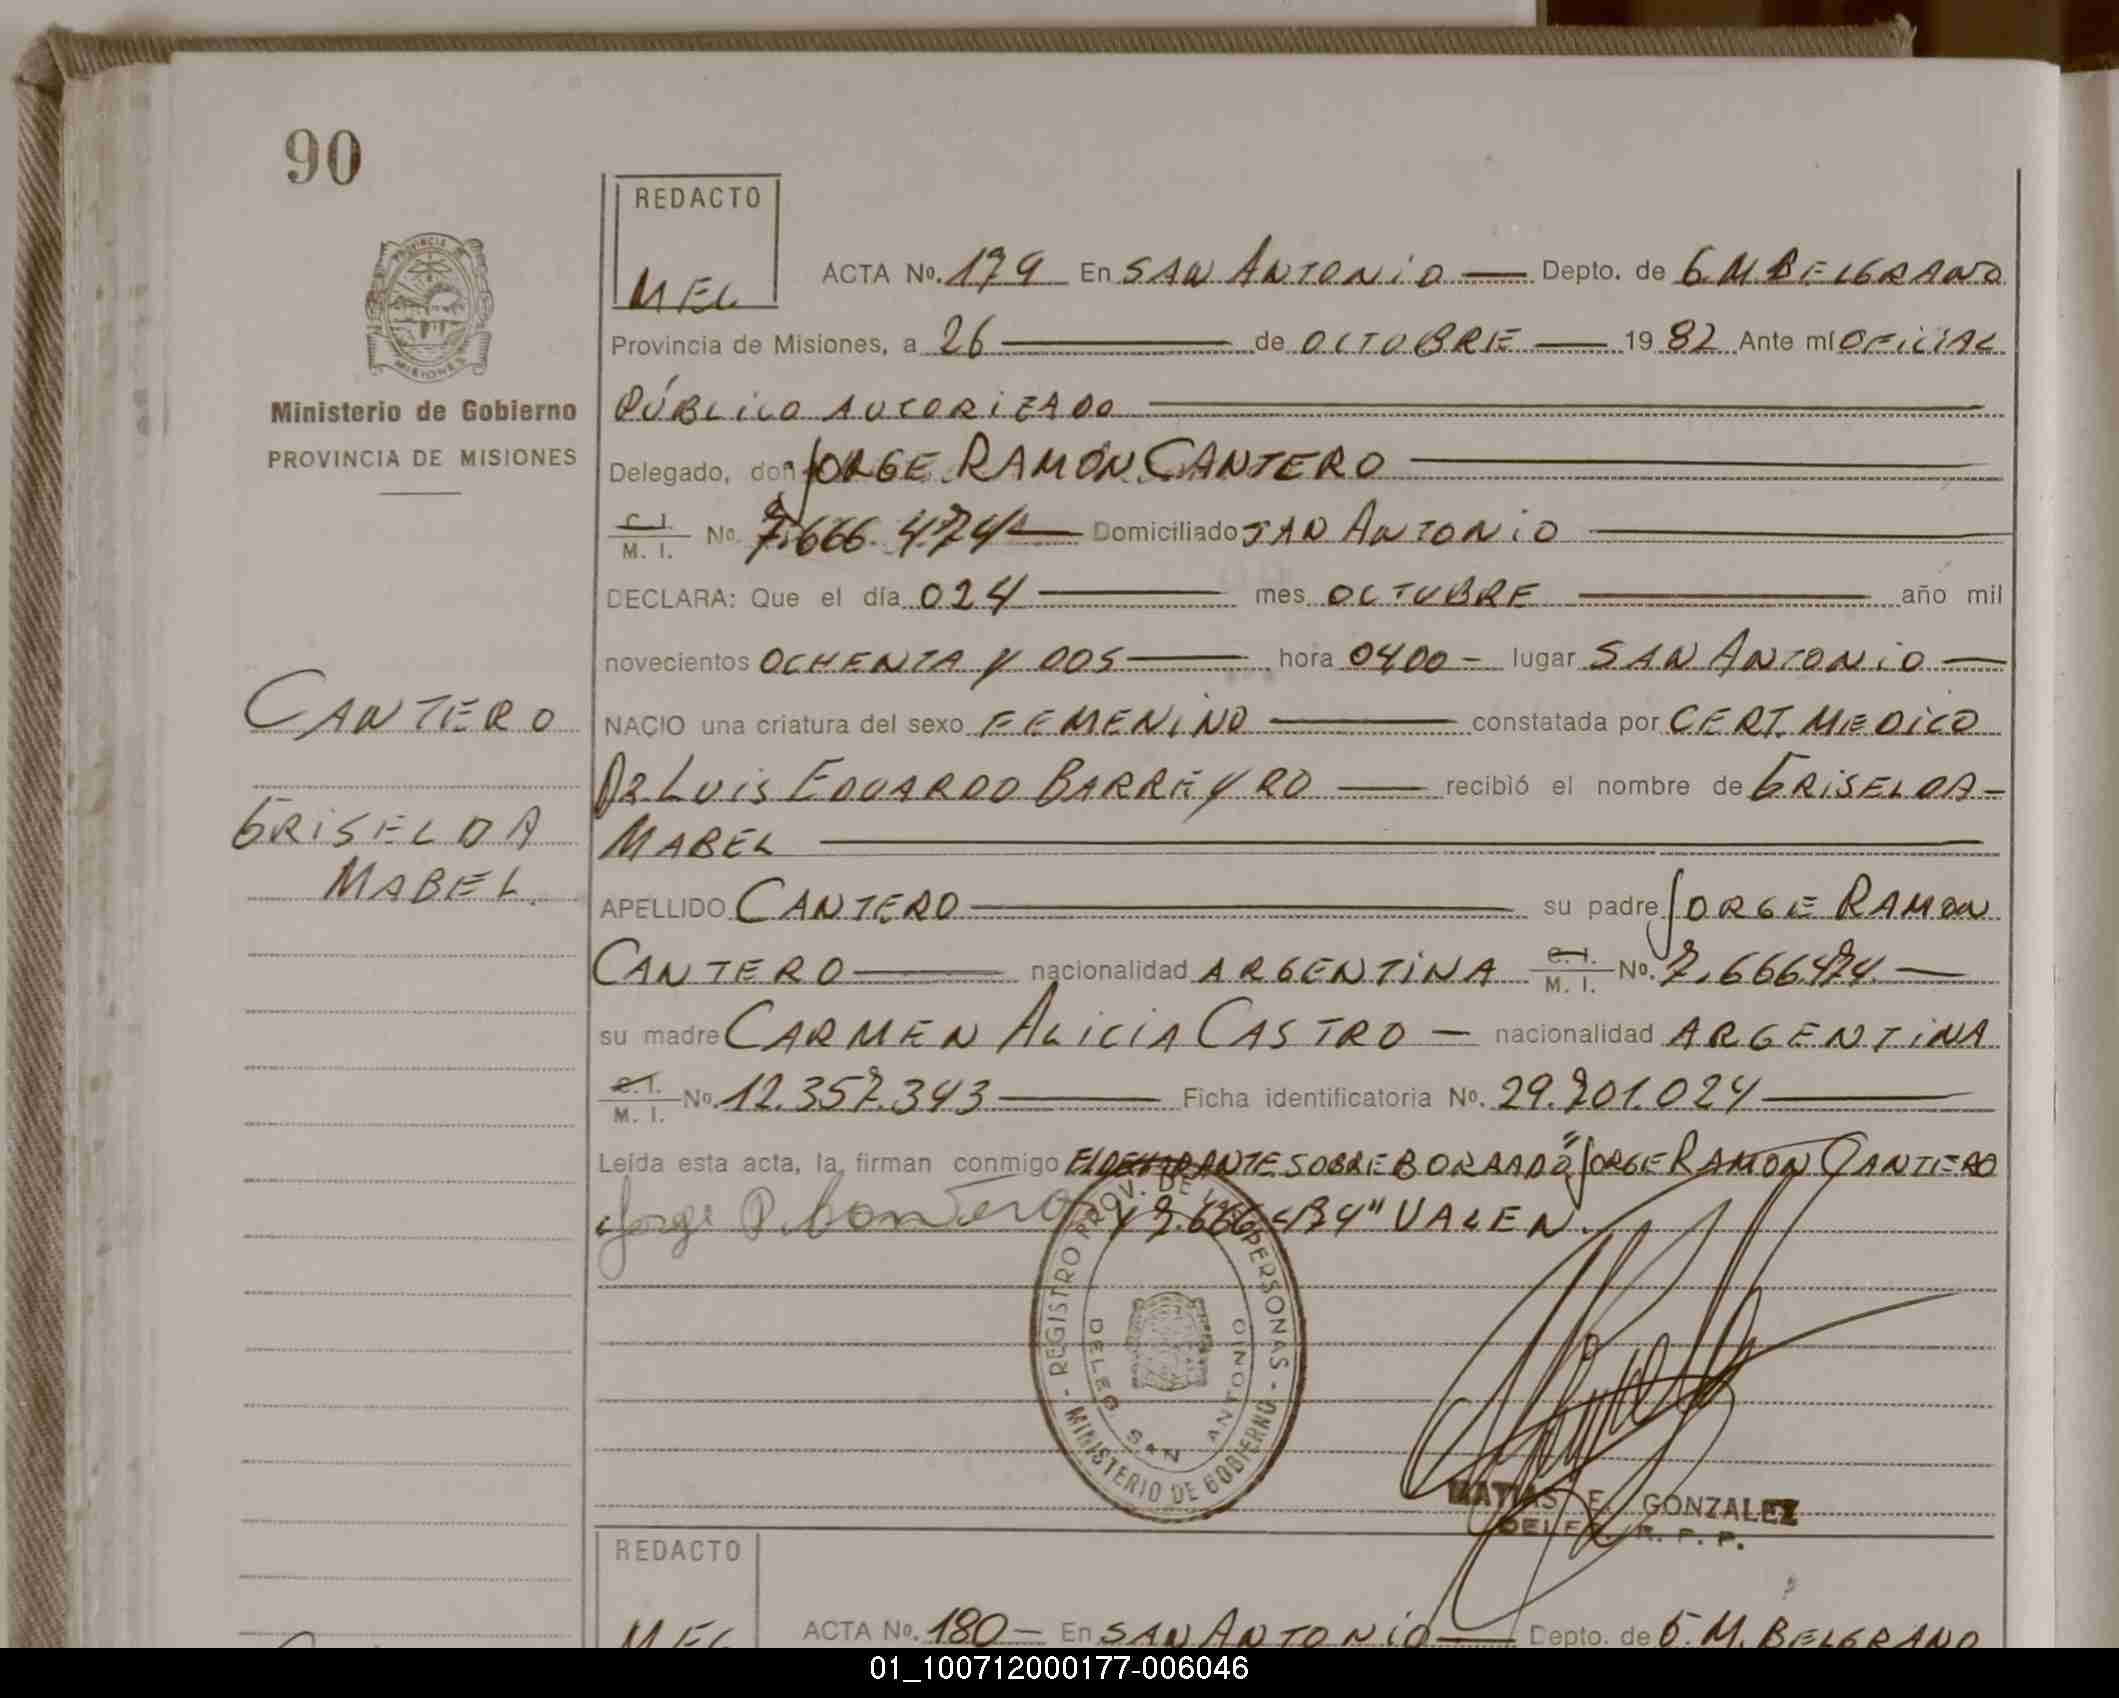 90
REDACTO
MEG
PROVINCIA
MISIONES
Ministerio de Gobierno
PROVINCIA DE MISIONES
ACTA No. 179 En SAN ANTONIO — Depto. de G. M. BELGRANO
Provincia de Misiones, a 26 — de OCTUBRE — 19 82 Ante mí OFICIAL
PÚBLICO AUTORIZADO —
Delegado, don JORGE RAMÓN CANTERO —
C. I. / M. I. No. 7.666.474 — Domiciliado SAN ANTONIO —
DECLARA: Que el día 024 — mes OCTUBRE — año mil
novecientos OCHENTA Y DOS — hora 0400 - lugar SAN ANTONIO —
CANTERO
NACIO una criatura del sexo FEMENINO — constatada por CERT. MEDICO
DR LUIS EDUARDO BARREYRO — recibió el nombre de GRISELDA -
GRISELDA
MABEL —
MABEL.
APELLIDO CANTERO — su padre JORGE RAMON
CANTERO — nacionalidad ARGENTINA C. I. / M. I. No. 7.666.474. —
su madre CARMEN ALICIA CASTRO — nacionalidad ARGENTINA
C. I. / M. I. No. 12.357.343 — Ficha identificatoria No. 29.701.024 —
Leída esta acta, la firman conmigo SOBREBORRADO "JORGE RAMON CANTERO
Jorge R. Cantero Y 7.666.474" VALEN.
- REGISTRO PROV. DE LAS PERSONAS -
MINISTERIO DE GOBIERNO
DELEG. SAN ANTONIO
MATIAS E. GONZALEZ
REDACTO
MEG
ACTA No. 180 — En SAN ANTONIO — Depto. de G. M. BELGRANO
01_100712000177-006046